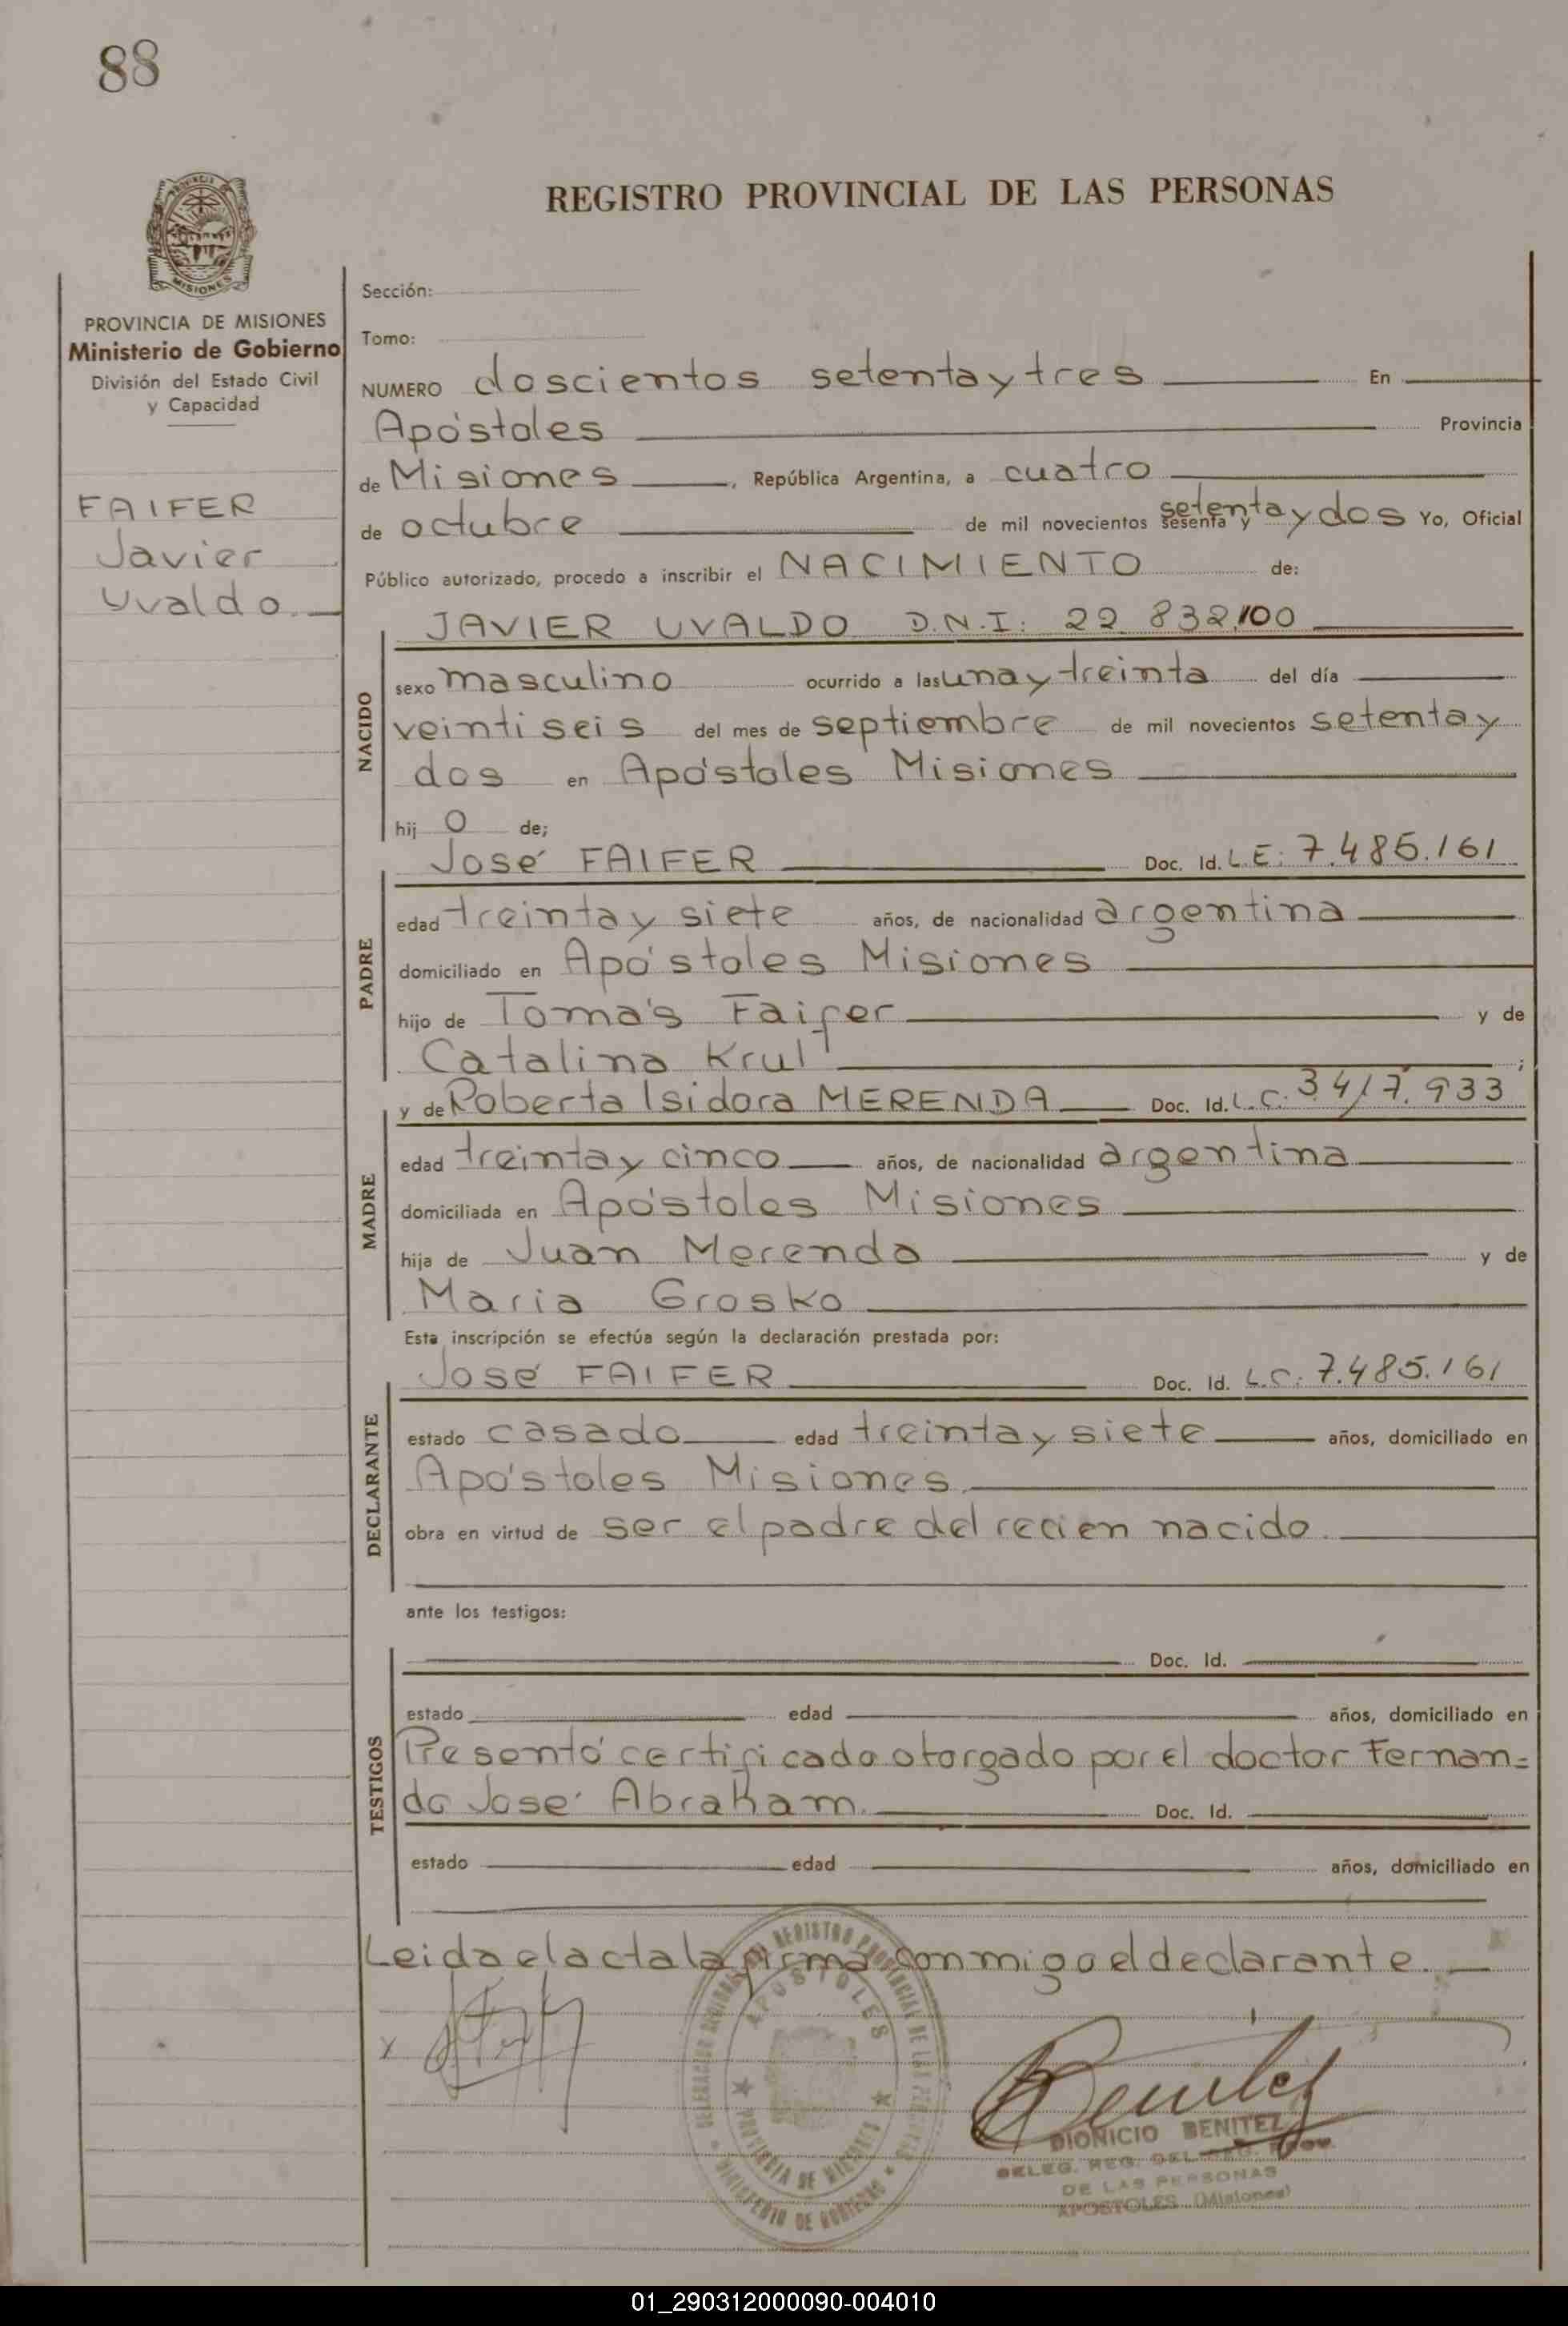 88
REGISTRO PROVINCIAL DE LAS PERSONAS
PROVINCIA DE MISIONES
Ministerio de Gobierno
División del Estado Civil
y Capacidad
FAIFER
Javier
Uvaldo.
Sección:
Tomo:
NUMERO doscientos setenta y tres En
Apóstoles Provincia
de Misiones, República Argentina, a cuatro
de octubre de mil novecientos sesenta y setenta y dos Yo, Oficial
Público autorizado, procedo a inscribir el NACIMIENTO de:
JAVIER UVALDO D.N.I: 22 832.100
NACIDO
sexo masculino ocurrido a las una y treinta del día
veintiseis del mes de septiembre de mil novecientos setenta y
dos en Apóstoles Misiones
hij o de;
José FAIFER Doc. Id. L.E: 7.485.161
PADRE
edad treinta y siete años, de nacionalidad argentina
domiciliado en Apóstoles Misiones
hijo de Tomás Faifer y de
Catalina Krul;
y de Roberta Isidora MERENDA Doc. Id. L.C: 3.417.933
MADRE
edad treinta y cinco años, de nacionalidad argentina
domiciliada en Apóstoles Misiones
hija de Juan Merenda y de
Maria Grosko
Esta inscripción se efectúa según la declaración prestada por:
José FAIFER Doc. Id. L.C: 7.485.161
DECLARANTE
estado casado edad treinta y siete años, domiciliado en
Apóstoles Misiones.
obra en virtud de ser el padre del recien nacido.
ante los testigos:
Doc. Id.
TESTIGOS
estado edad años, domiciliado en
Presentó certificado otorgado por el doctor Fernan=
do José Abraham. Doc. Id.
estado edad años, domiciliado en
Leida el acta la firma conmigo el declarante.
x
APOSTOLES
PROVINCIA DE MISIONES
MINISTERIO DE GOBIERNO
Benitez
DIONICIO BENITEZ
DELEG. REG. DEL REG. PROV.
DE LAS PERSONAS
APOSTOLES (Misiones)
01_290312000090-004010